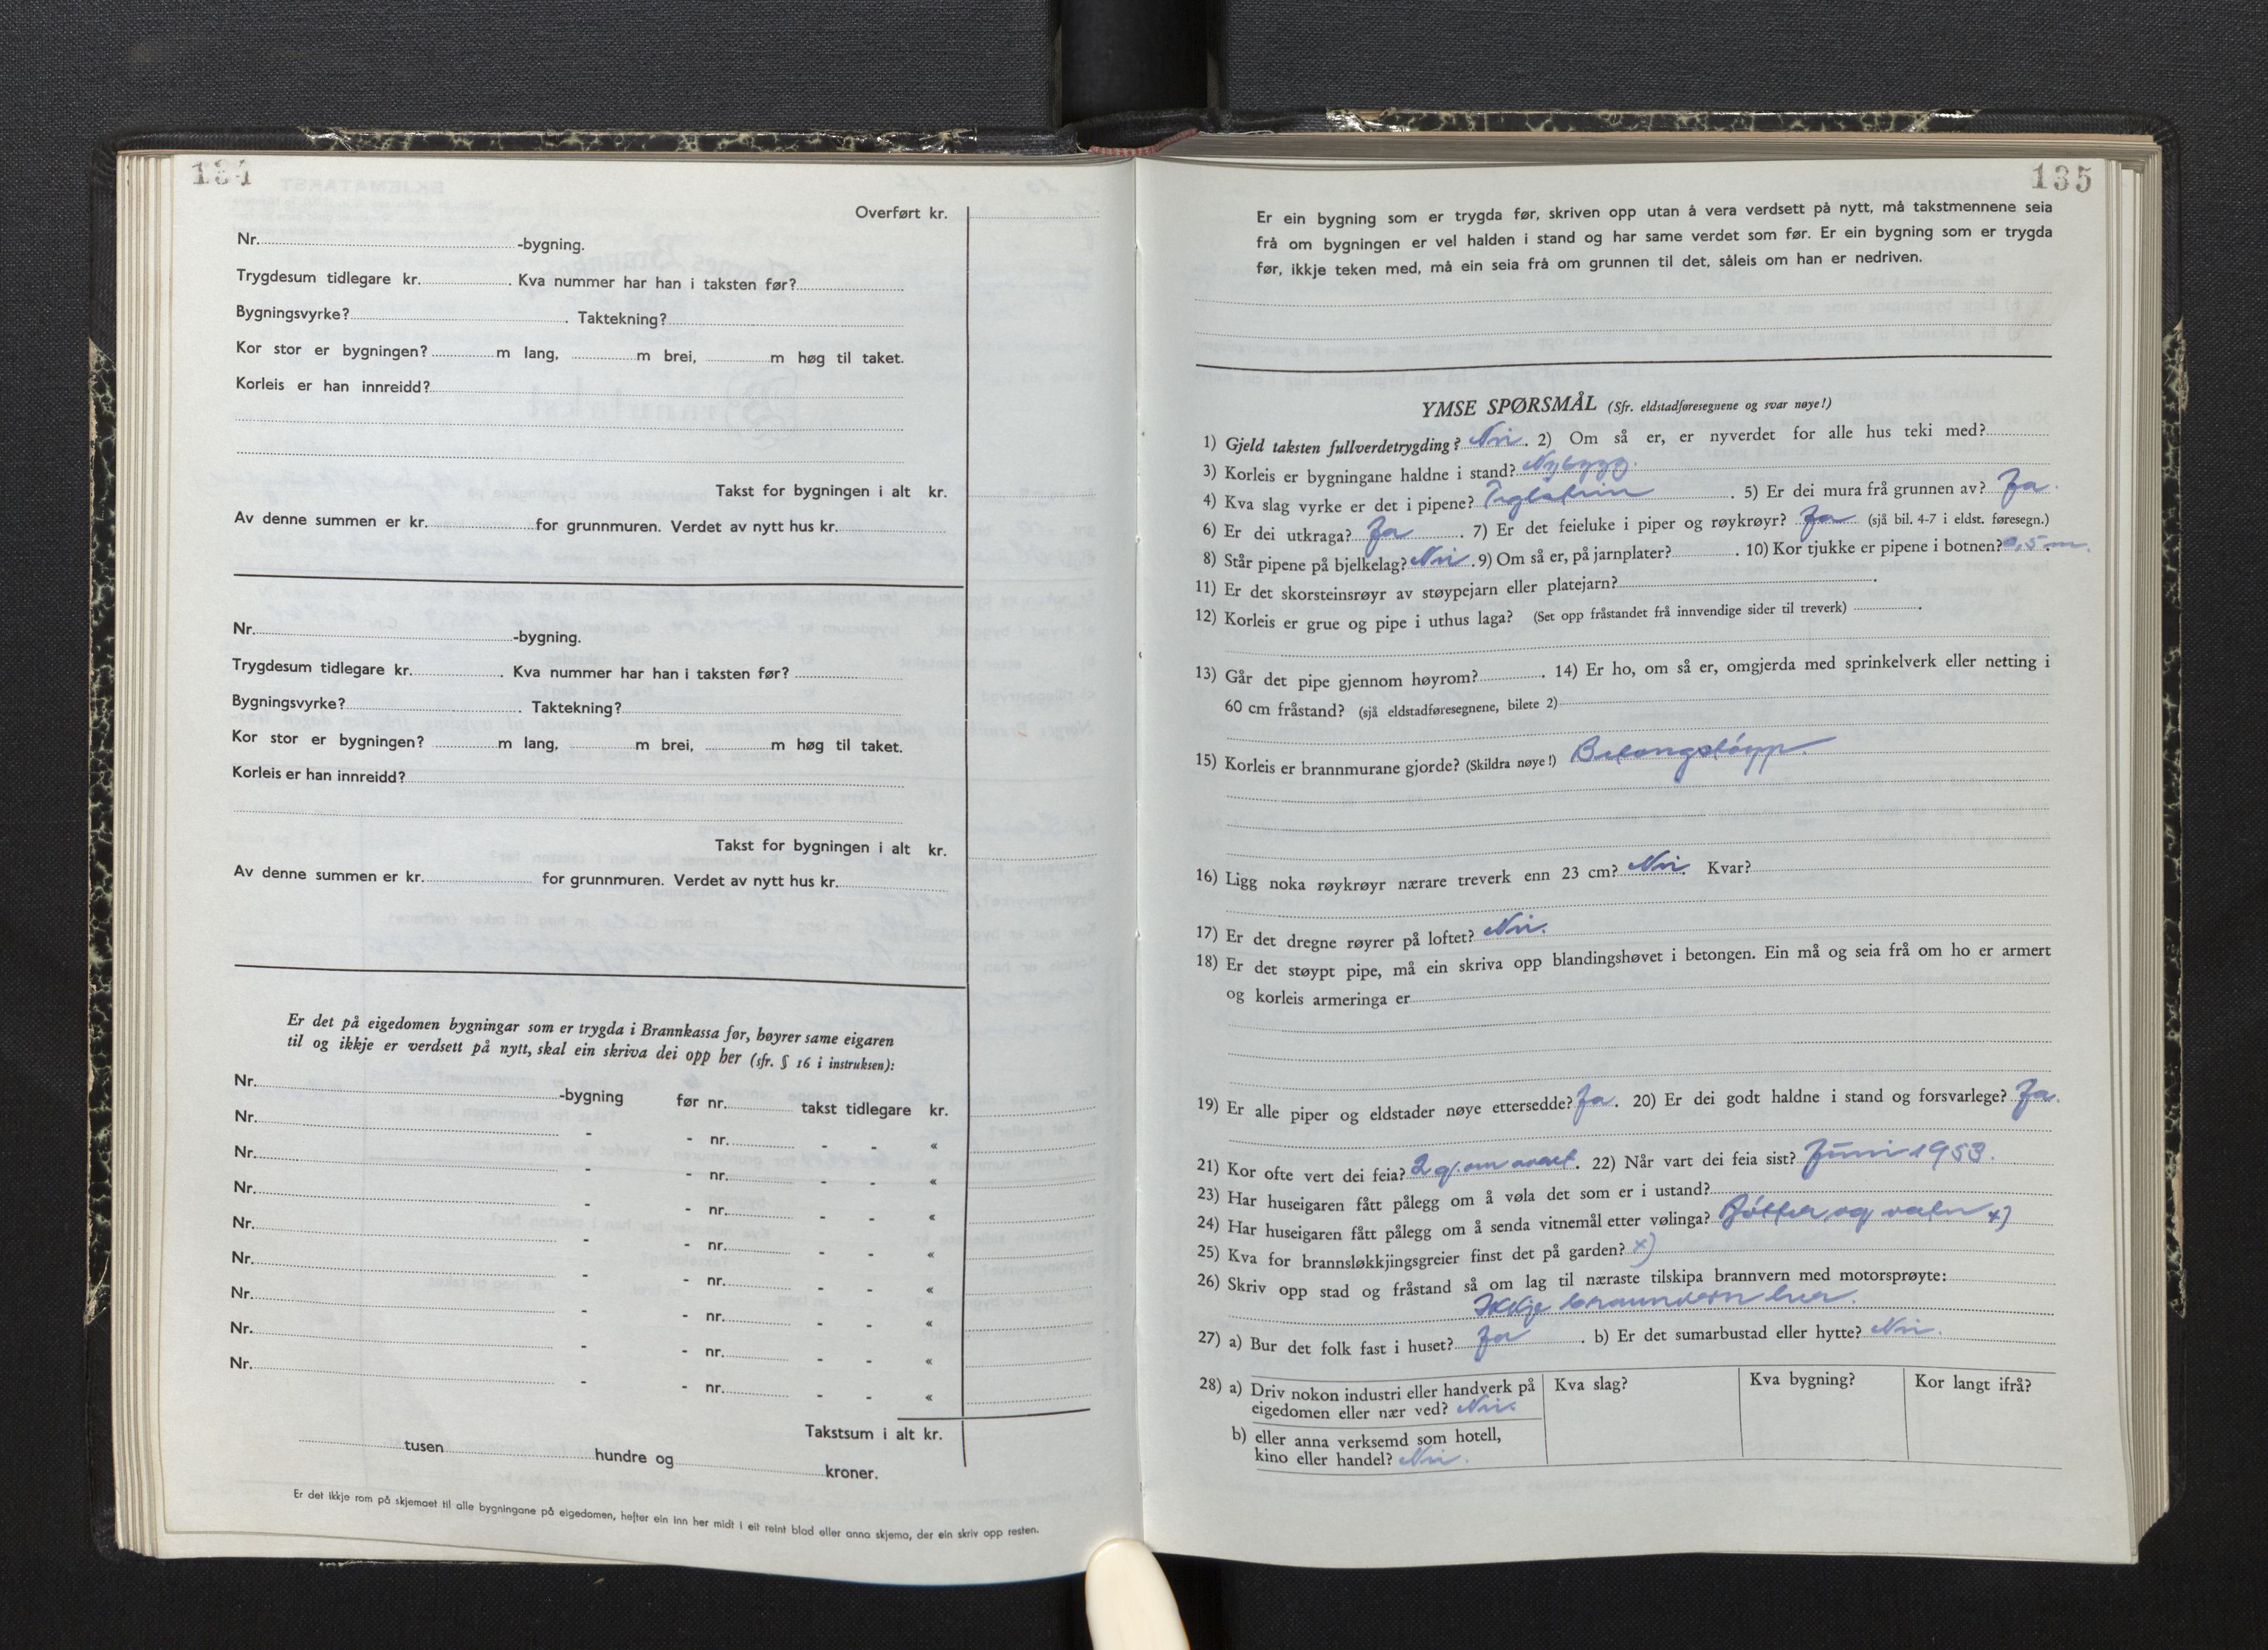 134
Overført kr.
Nr. -bygning.
Trygdesum tidlegare kr. . Kva nummer har han i taksten før?
Bygningsvyrke? . Taktekning?
Kor stor er bygningen? m lang, m brei, m høg til taket.
Korleis er han innreidd?
Takst for bygningen i alt kr.
Av denne summen er kr. for grunnmuren. Verdet av nytt hus kr.
Nr. -bygning.
Trygdesum tidlegare kr. . Kva nummer har han i taksten før?
Bygningsvyrke? . Taktekning?
Kor stor er bygningen? m lang, m brei, m høg til taket.
Korleis er han innreidd?
Takst for bygningen i alt kr.
Av denne summen er kr. for grunnmuren. Verdet av nytt hus kr.
Er det på eigedomen bygningar som er trygda i Brannkassa før, høyrer same eigaren
til og ikkje er verdsett på nytt, skal ein skriva dei opp her (sfr. § 16 i instruksen):
Nr. -bygning før nr. takst tidlegare kr.
Nr. - - nr. - - «
Nr. - - nr. - - «
Nr. - - nr. - - «
Nr. - - nr. - - «
Nr. - - nr. - - «
Nr. - - nr. - - «
Nr. - - nr. - - «
Nr. - - nr. - - «
Takstsum i alt kr.
tusen hundre og kroner.
Er det ikkje rom på skjemaet til alle bygningane på eigedomen, hefter ein inn her midt i eit reint blad eller anna skjema, der ein skriv opp resten.
135
Er ein bygning som er trygda før, skriven opp utan å vera verdsett på nytt, må takstmennene seia
frå om bygningen er vel halden i stand og har same verdet som før. Er ein bygning som er trygda
før, ikkje teken med, må ein seia frå om grunnen til det, såleis om han er nedriven.
YMSE SPØRSMÅL (Sfr. eldstadføresegnene og svar nøye!)
1) Gjeld taksten fullverdetrygding? Nei . 2) Om så er, er nyverdet for alle hus teki med?
3) Korleis er bygningane haldne i stand? Nybygg.
4) Kva slag vyrke er det i pipene? Teglstein . 5) Er dei mura frå grunnen av? Ja.
6) Er dei utkraga? Ja . 7) Er det feieluke i piper og røykrøyr? Ja (sjå bil. 4-7 i eldst. føresegn.)
8) Står pipene på bjelkelag? Nei . 9) Om så er, på jarnplater? . 10) Kor tjukke er pipene i botnen? 0,5 m.
11) Er det skorsteinsrøyr av støypejarn eller platejarn? .
12) Korleis er grue og pipe i uthus laga? (Set opp fråstandet frå innvendige sider til treverk) .
13) Går det pipe gjennom høyrom? . 14) Er ho, om så er, omgjerda med sprinkelverk eller netting i
60 cm fråstand? (sjå eldstadføresegnene, bilete 2)
15) Korleis er brannmurane gjorde? (Skildra nøye!) Betongstøyp.
16) Ligg noka røykrøyr nærare treverk enn 23 cm? Nei. Kvar?
17) Er det dregne røyrer på loftet? Nei.
18) Er det støypt pipe, må ein skriva opp blandingshøvet i betongen. Ein må og seia frå om ho er armert
og korleis armeringa er
19) Er alle piper og eldstader nøye ettersedde? Ja. 20) Er dei godt haldne i stand og forsvarlege? Ja.
21) Kor ofte vert dei feia? 2 g. om året. 22) Når vart dei feia sist? Juni 1953.
23) Har huseigaren fått pålegg om å vøla det som er i ustand?
24) Har huseigaren fått pålegg om å senda vitnemål etter vølinga? Bøtter og vatn x)
25) Kva for brannsløkkjingsgreier finst det på garden? x)
26) Skriv opp stad og fråstand så om lag til næraste tilskipa brannvern med motorsprøyte:
Ikkje brannvern her.
27) a) Bur det folk fast i huset? Ja . b) Er det sumarbustad eller hytte? Nei.
28) a) Driv nokon industri eller handverk på Kva slag? Kva bygning? Kor langt ifrå?
eigedomen eller nær ved? Nei.
b) eller anna verksemd som hotell,
kino eller handel? Nei.